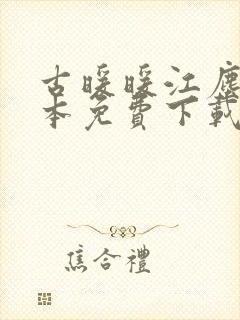 古暖暖江塵
本免費下載
焦合禮